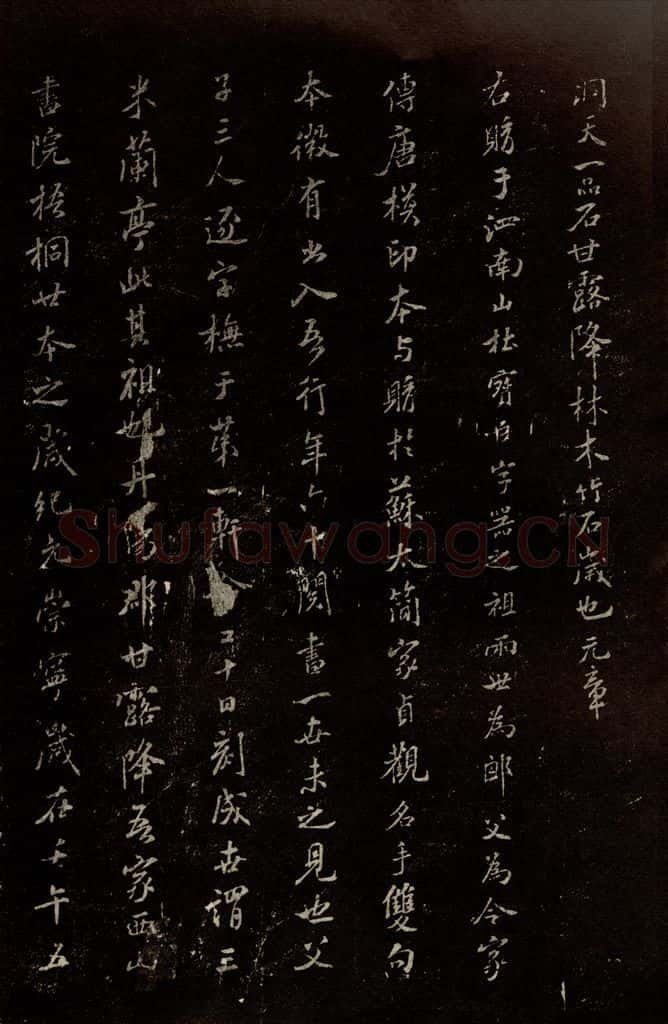 洞天一品石甘露降林木竹石歲也元章
右賜于泗南山杜寶臣字器之祖兩世為郎父為令家
傳唐模印本与賜於蘇大簡家貞觀名手雙勾
本微有出入吾行年六十閱書一世未之見也父
子三人逐字橅于第一軒
五十日刻成世謂三
米蘭亭此其祖也丹
郡甘露降吾家西山
書院梧桐廿本之歲紀元崇寧歲在壬午五
Shufawang.CN